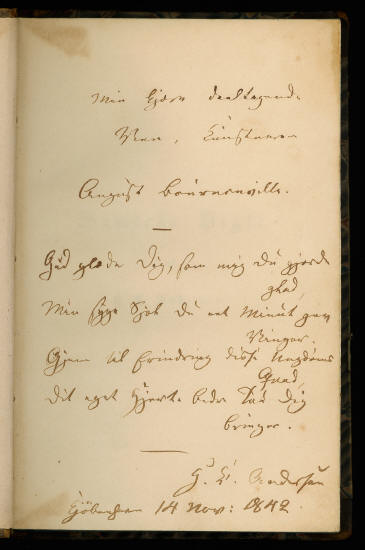 Min kjære deeltagende
Ven, Kunstneren
August Bournonville.
Gud glæde Dig, som mig Du gjorde
glad,
Min syge Sjæl Du et Minut gav
Vinger.
Gjem til Erindring disse Ungdoms
Qvad,
Dit eget Hjerte bedre Dig
bringer.
H. C. Andersen
Kjöbenhavn 14 Nov: 1842.